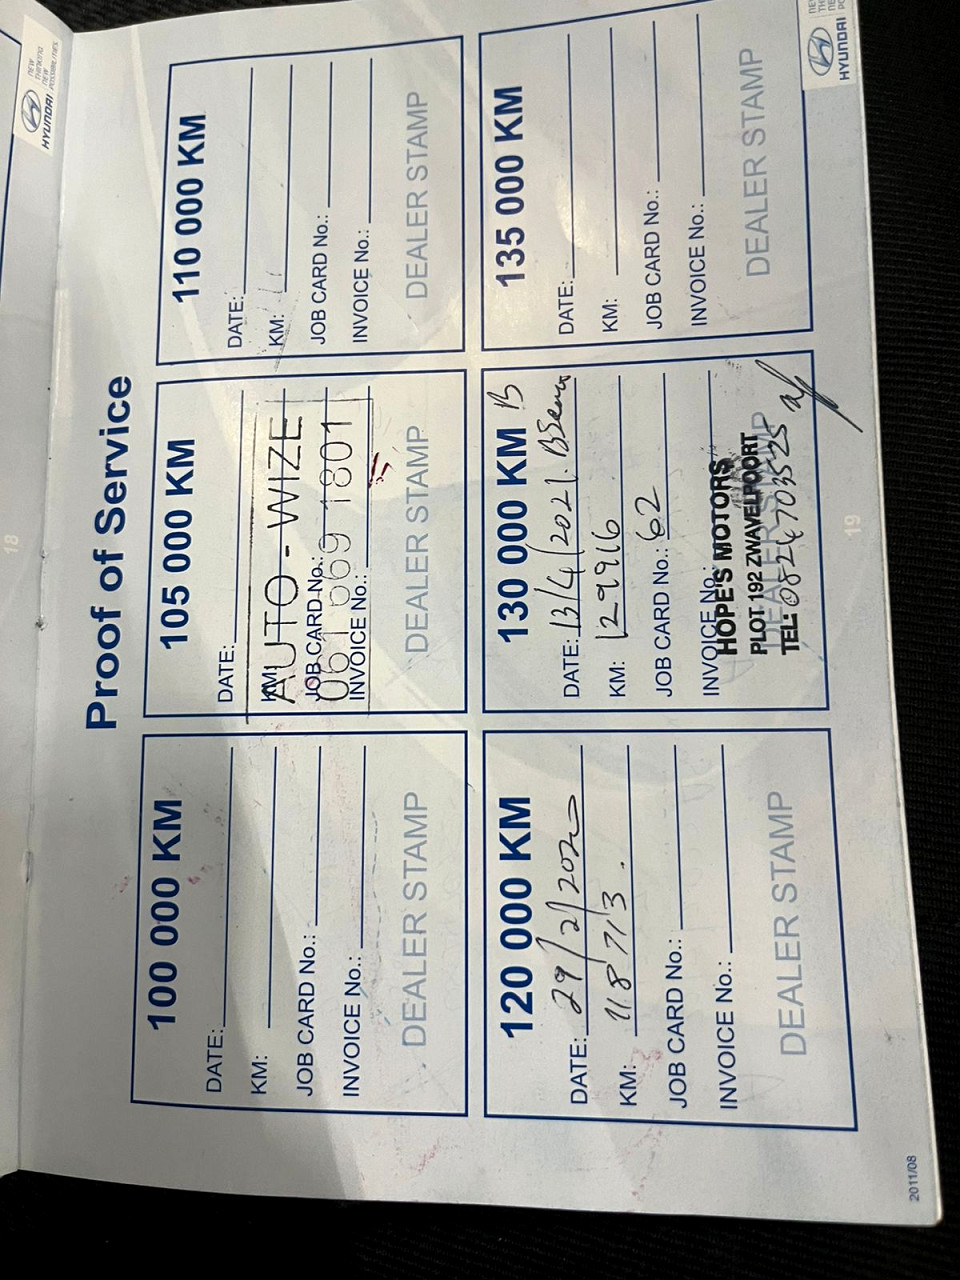 18
HYUNDAI
NEW
THINKING.
NEW
POSSIBILITIES.
Proof of Service
100 000 KM
DATE:
KM:
JOB CARD No.:
INVOICE No.:
DEALER STAMP
105 000 KM
DATE:
KM:
JOB CARD No.:
INVOICE No.:
DEALER STAMP
AUTO-WIZE
061 669 1801
110 000 KM
DATE:
KM:
JOB CARD No.:
INVOICE No.:
DEALER STAMP
120 000 KM
DATE: 29/2/2020
KM: 118713.
JOB CARD No.:
INVOICE No.:
DEALER STAMP
130 000 KM B
DATE: 13/4/2021. B Service
KM: 129916
JOB CARD No.: 62
INVOICE No.:
DEALER STAMP
HOPE'S MOTORS
PLOT 192 ZWAVELPOORT
TEL: 0824703525
135 000 KM
DATE:
KM:
JOB CARD No.:
INVOICE No.:
DEALER STAMP
HYUNDAI
19
2011/08